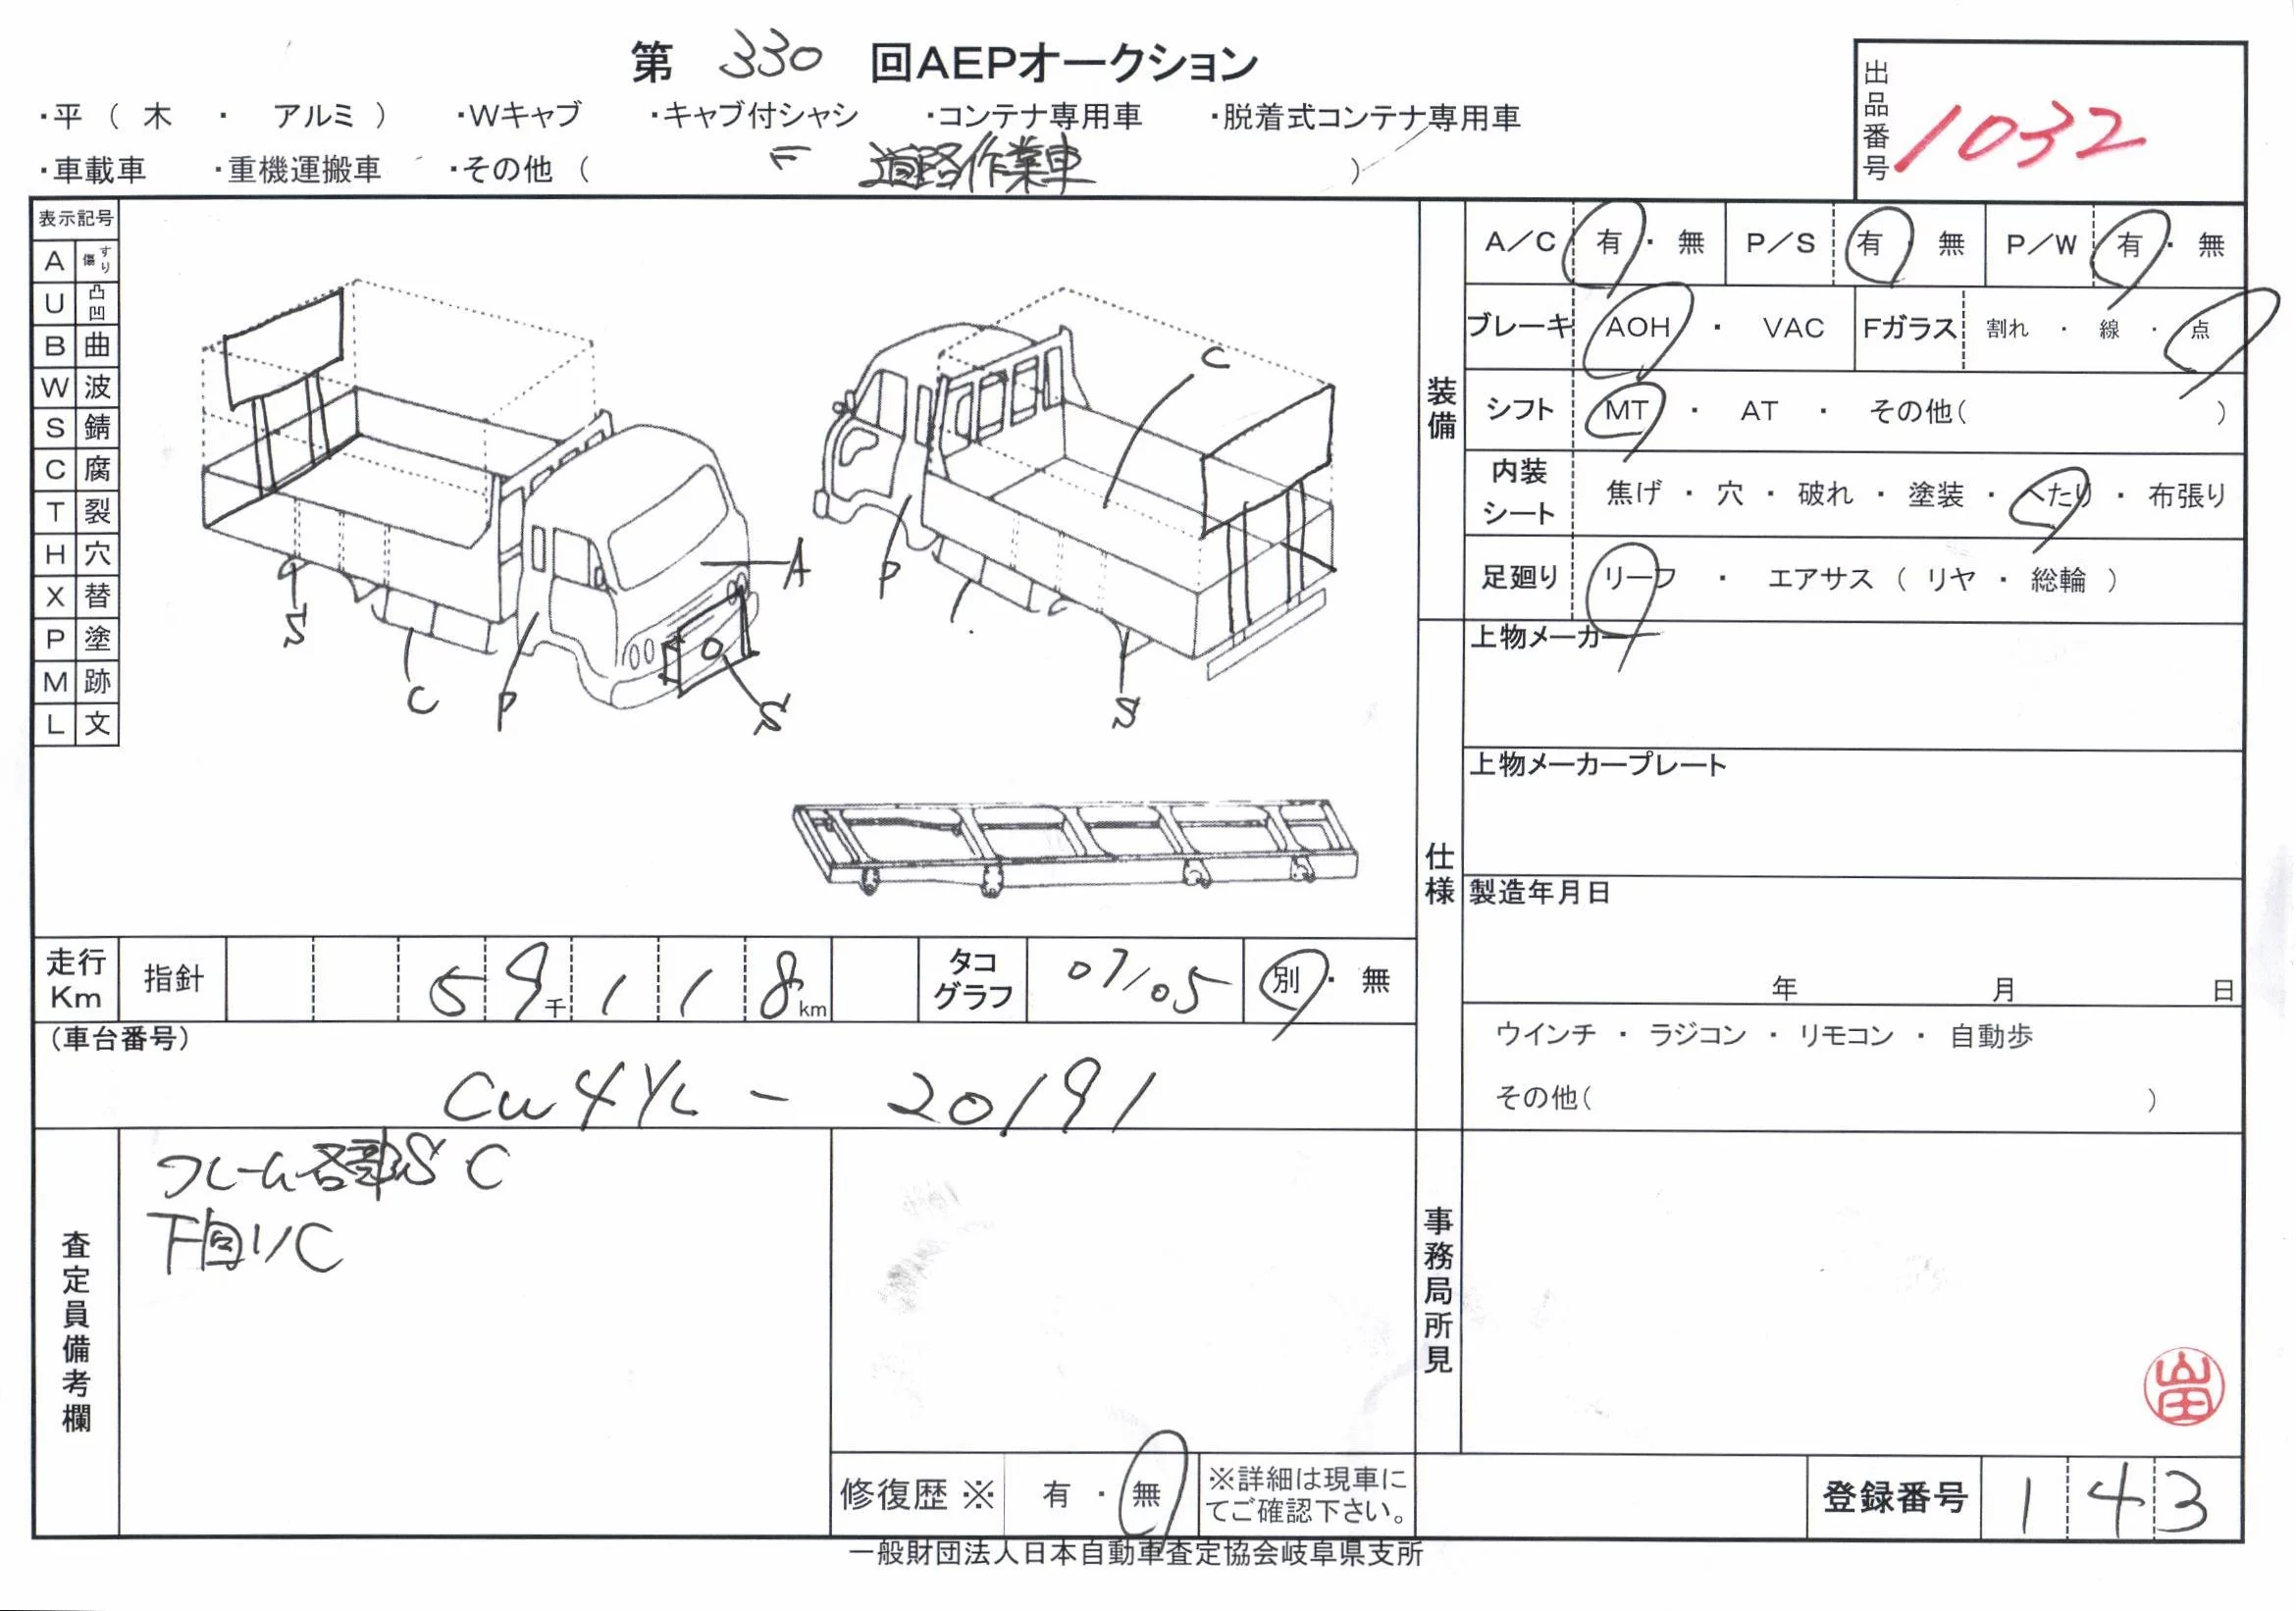 第 330 回AEPオークション
・平 ( 木 ・ アルミ ) ・Wキャブ ・キャブ付シャシ ・コンテナ専用車 ・脱着式コンテナ専用車
・車載車 ・重機運搬車 ・その他 ( 道路作業車 )
出品番号 1032
表示記号
A すり傷
U 凸凹
B 曲
W 波
S 錆
C 腐
T 裂
H 穴
X 替
P 塗
M 跡
L 文
S C P A S
P C S
装備
A/C 有・無 P/S 有・無 P/W 有・無
ブレーキ AOH ・ VAC Fガラス 割れ ・ 線 ・ 点
シフト MT ・ AT ・ その他( )
内装シート 焦げ ・ 穴 ・ 破れ ・ 塗装 ・ へたり ・ 布張り
足廻り リーフ ・ エアサス ( リヤ ・ 総輪 )
仕様
上物メーカー
上物メーカープレート
製造年月日
年 月 日
ウインチ ・ ラジコン ・ リモコン ・ 自動歩
その他( )
走行Km 指針 59千118km タコグラフ 07/05 別・無
(車台番号)
CU4YL - 20191
査定員備考欄
フレーム各部SC
下回りC
事務局所見
修復歴 ※ 有 ・ 無 ※詳細は現車にてご確認下さい。
登録番号 143
一般財団法人日本自動車査定協会岐阜県支所